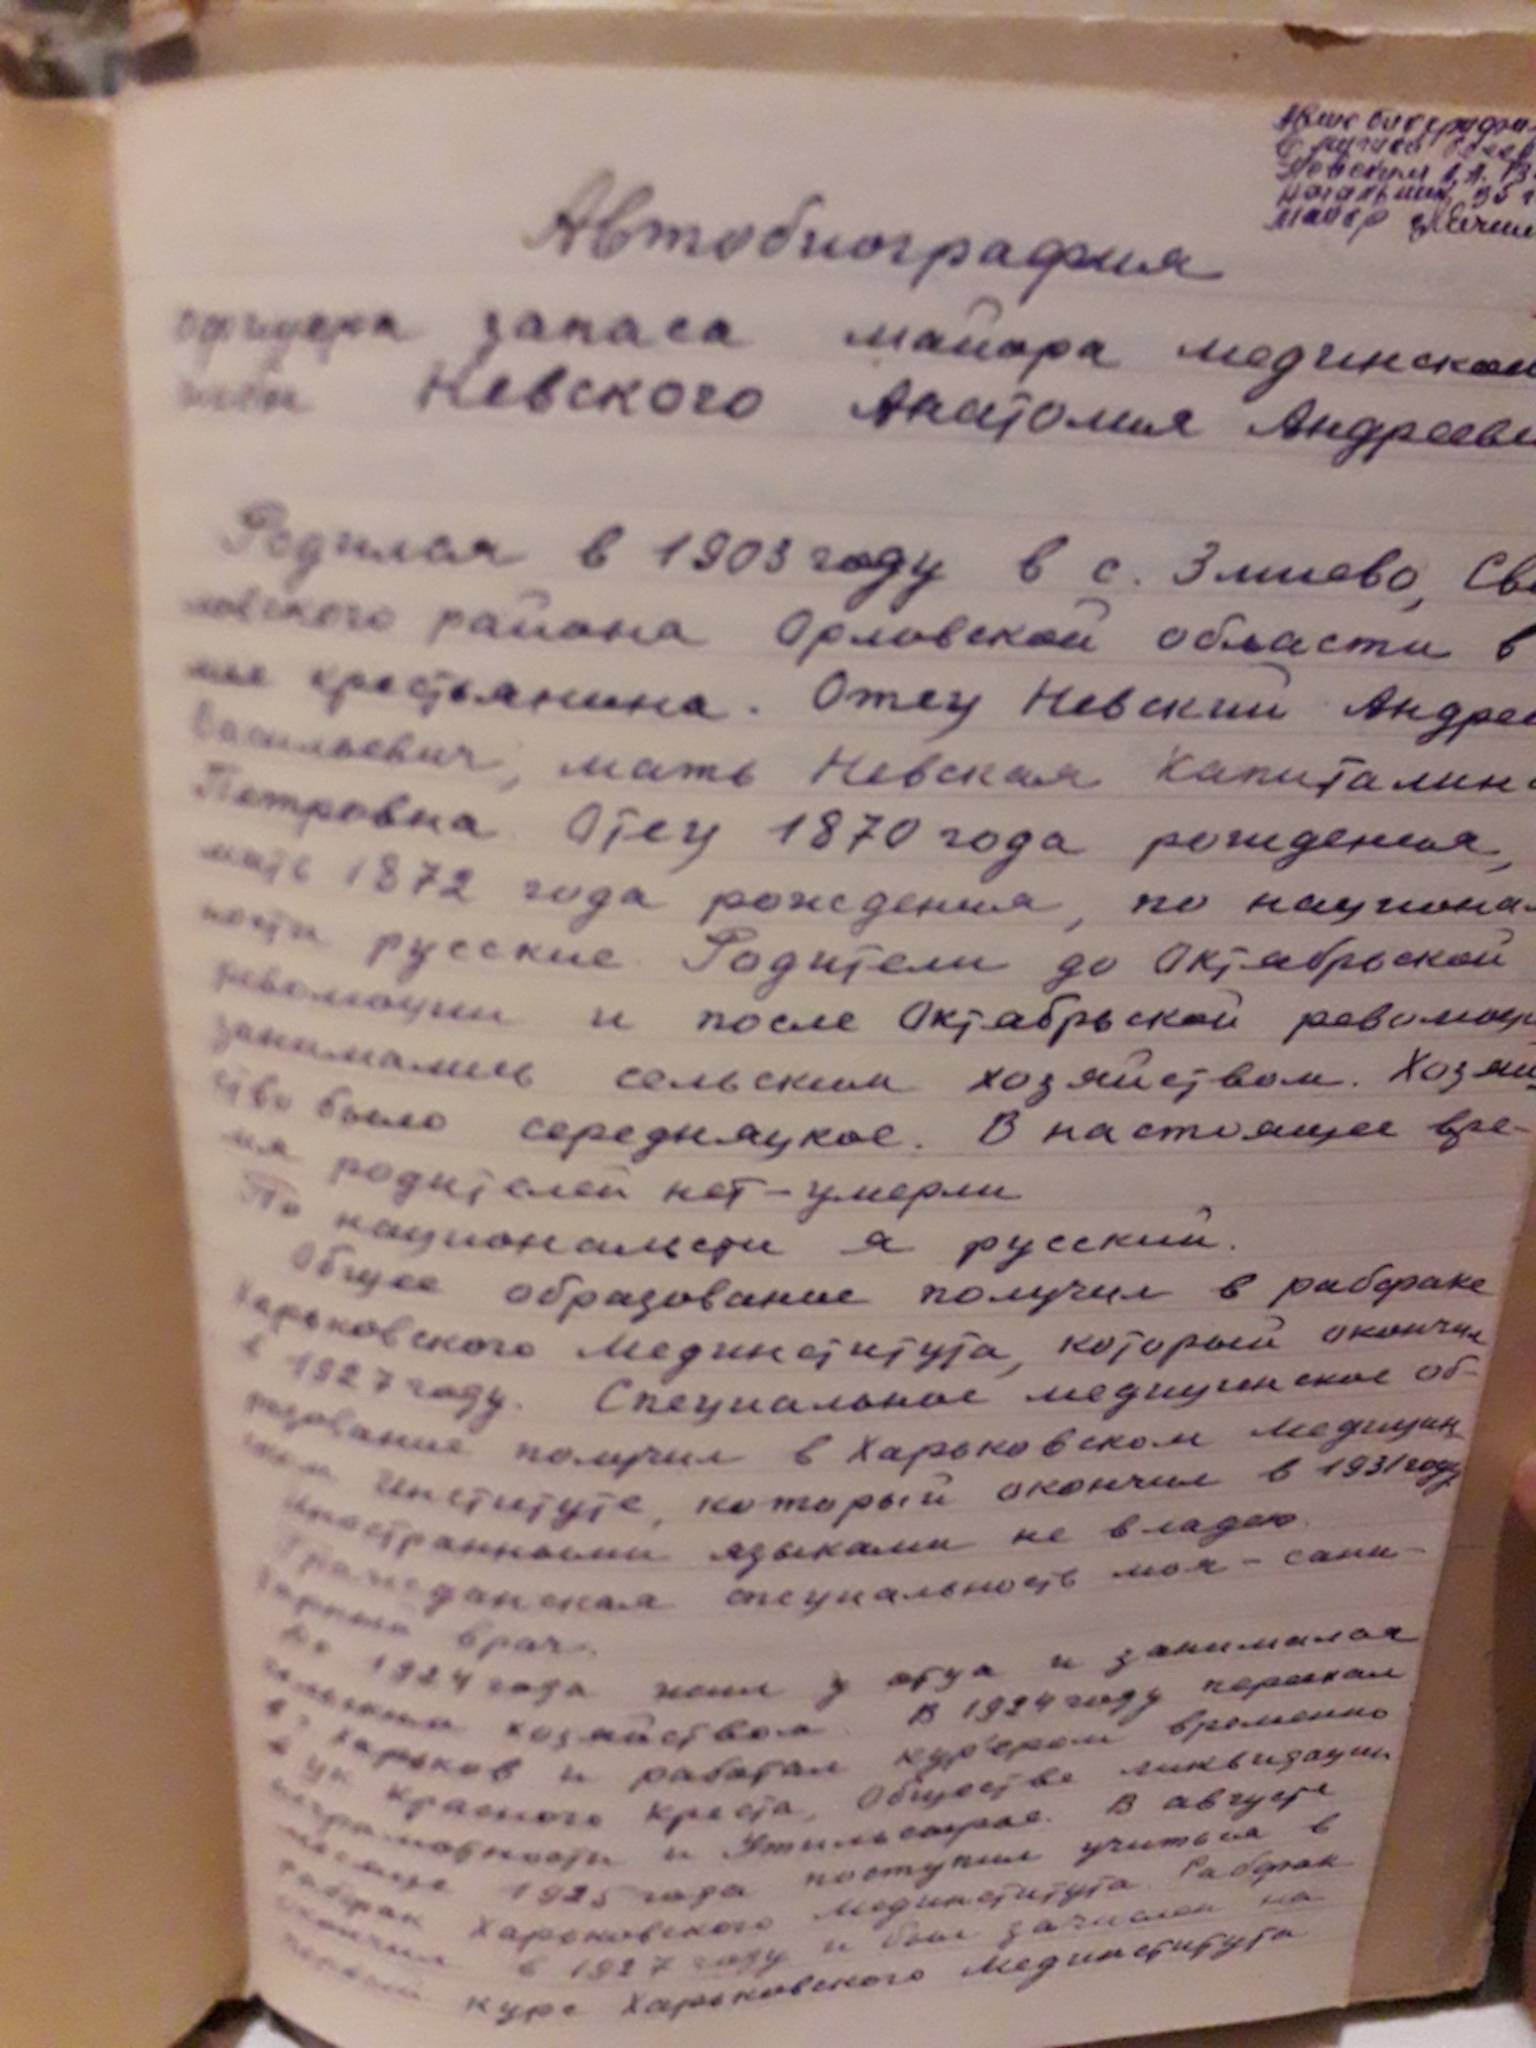 Автобиография
Невский А.А.
майор
Автобиография
офицера запаса майора медицинской
Невского Анатолия Андрееви
Родился в 1903 году в с. Змиево, Сверд
ловского района Орловской области в
мье крестьянина. Отец Невский Андрей
Васильевич, мать Невская Капиталина
Петровна. Отец 1870 года рождения,
мать 1872 года рождения, по национал
ности русские. Родители до Октябрьской
революции и после Октябрьской революци
занимались сельским хозяйством. Хозяй
ство было середняцкое. В настоящее вре-
мя родителей нет - умерли
По националъсти я русский.
Общее образование получил в рабфаке
Харьковского Мединститута, который окончил
в 1927 году. Специальное медицинское об-
разование получил в Харьковском Медицин
ском Институте, который окончил в 1931 году
Иностранными языками не владею.
Гражданская специальность моя - сани-
тарный врач.
До 1924 года жил у отца и занимался
сельским хозяйством. В 1924 году переехал
в г. Харьков и работал курьером временно
в Ук Красного Креста, Обществе ликвидации
неграмотности и Утильсырье. В августе
месяце 1925 года поступил учиться в
рабфак Харьковского Мединститута. Рабфак
окончил в 1927 году и был зачислен на
первый курс Харьковского Мединститута